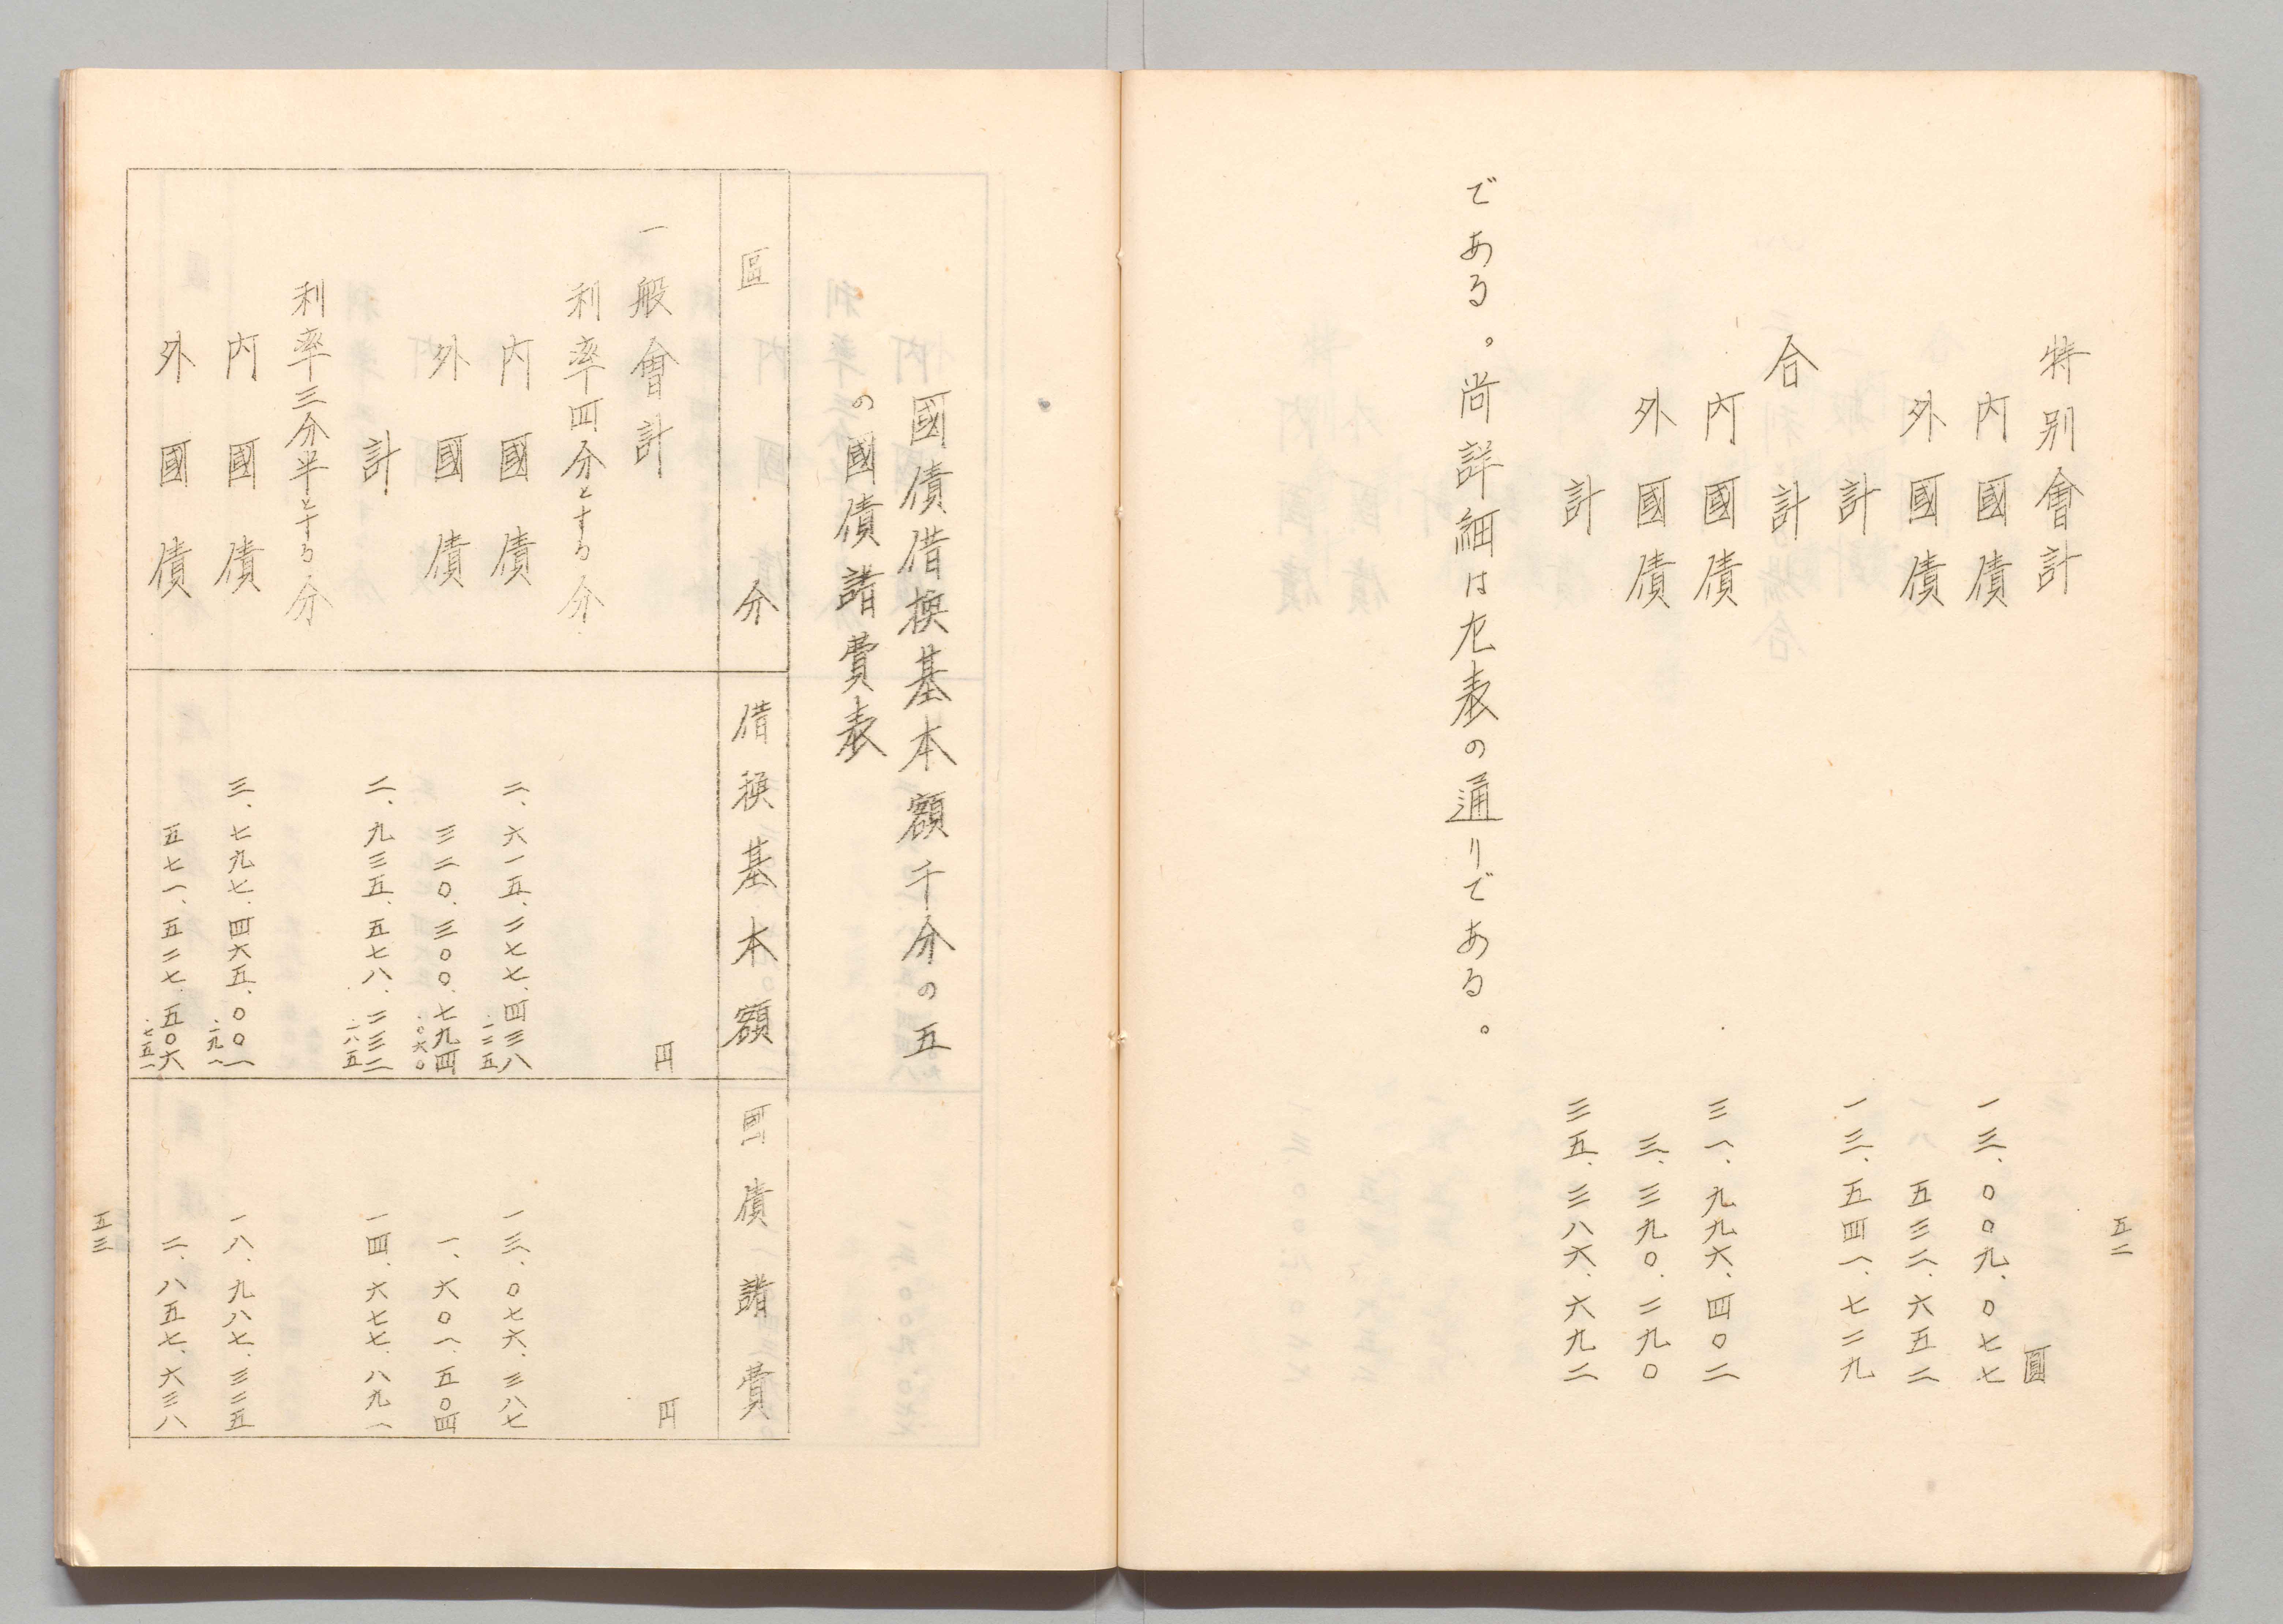 五二
特別會計 圓
内國債 一三、〇〇九、〇七七
外國債 五三二、六五二
計 一三、五四一、七二九
合計
内國債 三一、九九六、四〇二
外國債 三、三九〇、二九〇
計 三五、三八六、六九二
である。尚詳細は左表の通りである。
國債借換基本額千分の五
の國債諸費表
區分 借換基本額 國債諸費
一般會計 円 円
利率四分とする分
内國債 二、六一五、二七七、四三八.一二五 一三、〇七六、三八七
外國債 三二〇、三〇〇、七九四.〇六〇 一、六〇一、五〇四
計 二、九三五、五七八、二三二.一八五 一四、六七七、八九一
利率三分半とする分
内國債 三、七九七、四六五、〇〇一.一九一 一八、九八七、三二五
外國債 五七一、五二七、五〇六.七五一 二、八五七、六三八
五三